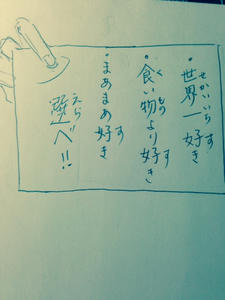 せかいいち す
・世界一好き
く もの す
・食い物より好き
す
・まあまあ好き
えら
選べ!!